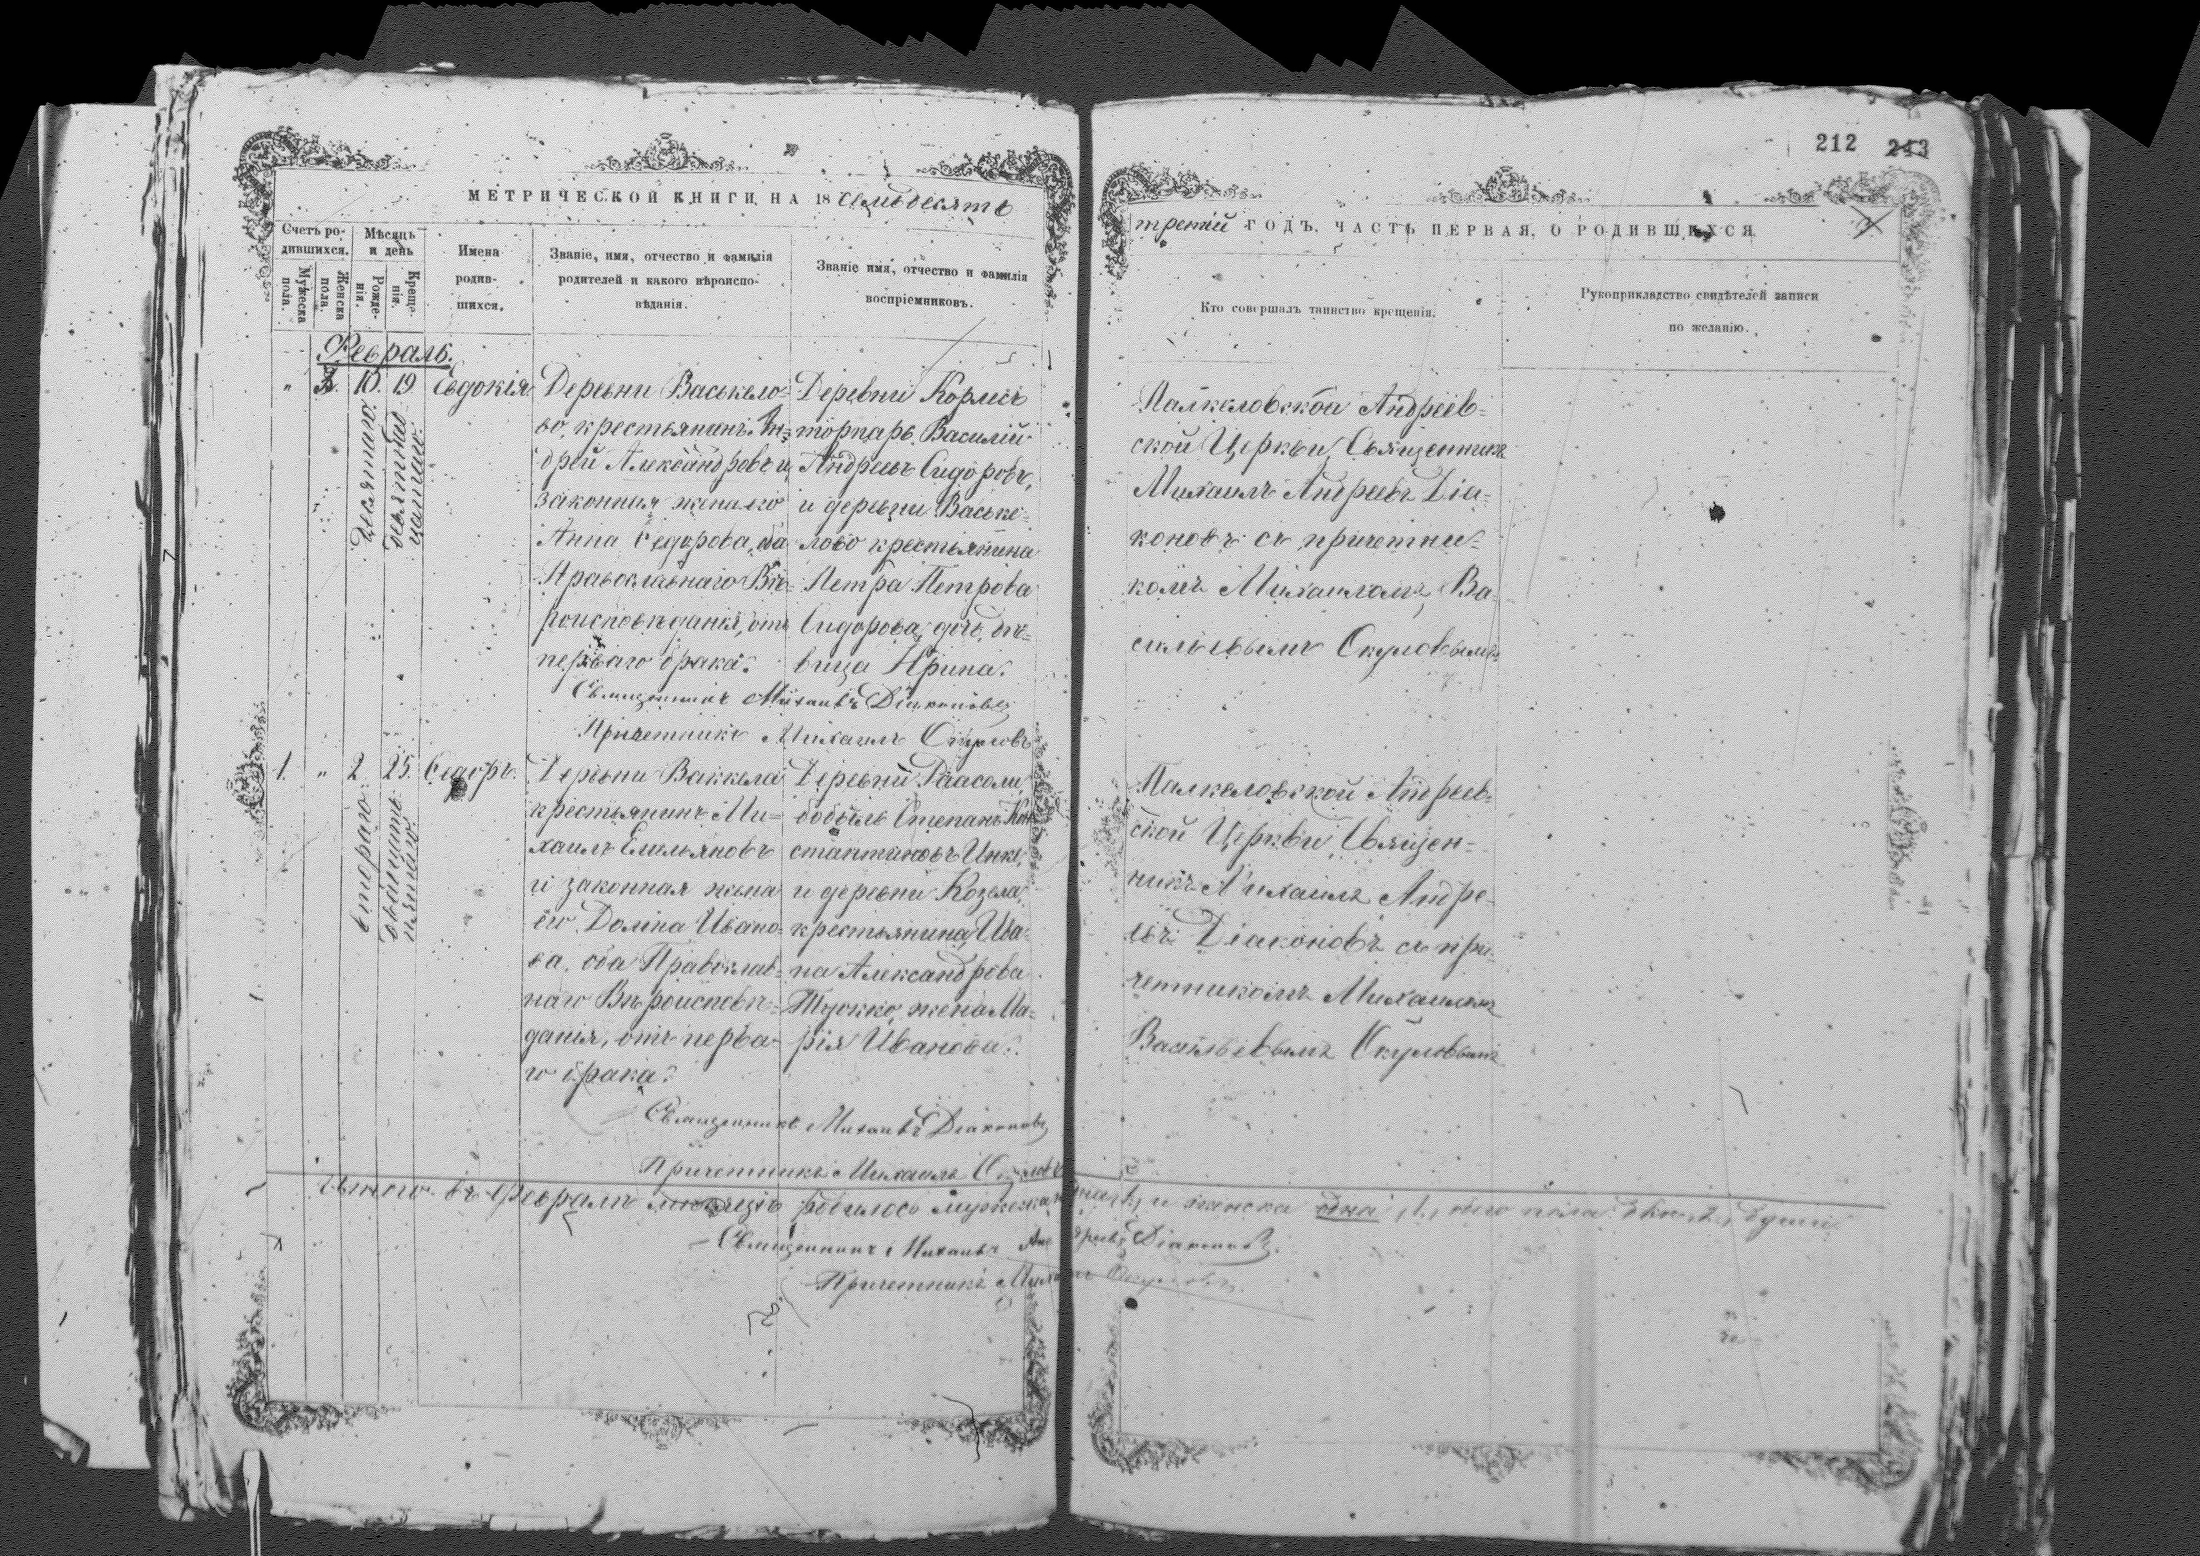 212 243
МЕТРИЧЕСКОЙ КНИГИ НА 18 семьдесятъ
третій ГОДЪ, ЧАСТЬ ПЕРВАЯ, О РОДИВШИХСЯ
Счетъ ро-
дившихся.
Мужеска
пола.
Женска
пола.
Мѣсяцъ
и день
Рожде-
нія.
Креще-
нія.
Имена
родив-
шихся.
Званіе, имя, отчество и фамилія
родителей и какого вѣроиспо-
вѣданія.
Званіе имя, отчество и фамилія
воспріемниковъ.
Кто совершалъ таинство крещенія.
Рукоприкладство свидѣтелей записи
по желанію.
Февраль.
" 10. 19 Евдокія.
десятаго.
девятнад
цатаго.
Деревни Васькело-
во, крестьянинъ Ан-
дрей Александровъ и
законная жена его
Анна Сидорова, оба
Православнаго Вѣ-
роисповѣданія, отъ
перваго брака.
Деревни Корлисъ
торпарь Василій
Андреевъ Сидоровъ,
и деревни Ваське-
лово крестьянина
Петра Петрова
Сидорова, дочь, дѣ-
вица Ирина.
Палкеловской Андреев-
ской Церкви, Священникъ
Михаилъ Андреевъ Діа-
коновъ съ причетни-
комъ Михаиломъ Ва-
сильевымъ Окуловымъ
Священникъ Михаилъ Діаконовъ
Причетникъ Михаилъ Окуловъ
1. " 2 25. Сидоръ.
втораго.
двадцать
пятаго.
Деревни Ваккела
крестьянинъ Ми-
хаилъ Емельяновъ
и законная жена
его Домна Ивано-
ва, оба Православ-
наго Вѣроисповѣ-
данія, отъ перва-
го брака.
Деревни Раасоли,
бобыль Степанъ Кон
стантиновъ Инке,
и деревни Козела,
крестьянина, Ива-
на Александрова
Тукко, жена Ма-
рія Иванова.
Палкеловской Андреев-
ской Церкви Священ-
никъ Михаилъ Андре-
евъ Діаконовъ съ при-
четникомъ Михаиломъ
Васильевымъ Окуловымъ
Священникъ Михаилъ Діаконовъ
Причетникъ Михаилъ Окуловъ
Итого въ Февралѣ мѣсяцѣ родилось мужеска и женска одна обоего пола двѣ души
Священникъ Михаилъ Андреевъ Діаконовъ.
Причетникъ Михаилъ Окуловъ